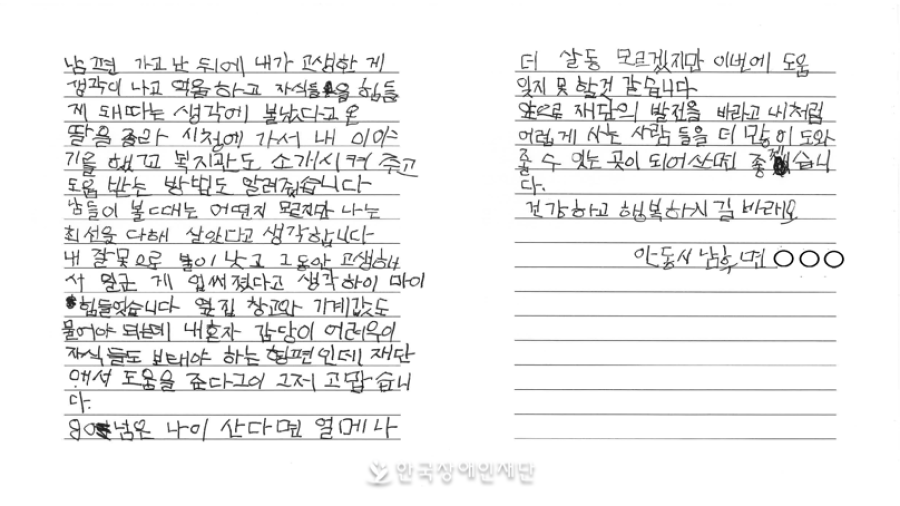 남편 가고 난 뒤에 내가 고생한 게
생각이 나고 억울하고 자식들을 힘들
게 돼따는 생각에 불났다고 온
딸을 졸라 시청에 가서 내 이야
기를 했고 복지관도 소개시켜 주고
도움 받는 방법도 알려줬습니다
남들이 볼때는 어떤지 모르지만 나는
최선을 다해 살았다고 생각합니다
내 잘못으로 불이 낫고 그동안 고생해
서 일군 게 업써졌다고 생각하이 마이
힘들엇습니다 옆집 창고와 기계값도
물어야 되는데 내혼자 감당이 어려우이
자식들도 보태야 하는 형편인데 재단
에서 도움을 준다그이 그저 고맙습니
다.
80넘은 나이 산다면 얼메나
더 살동 모르겠지만 이번에 도움
잊지 못 할것 같습니다
앞으로 재단의 발전을 바라고 내처럼
어렵게 사는 사람들을 더 많이 도와
줄 수 있는 곳이 되어 쓰면 좋겠습니
다.
건강하고 행복하시길 바래요
안동시 남후면 ○○○
한국장애인재단